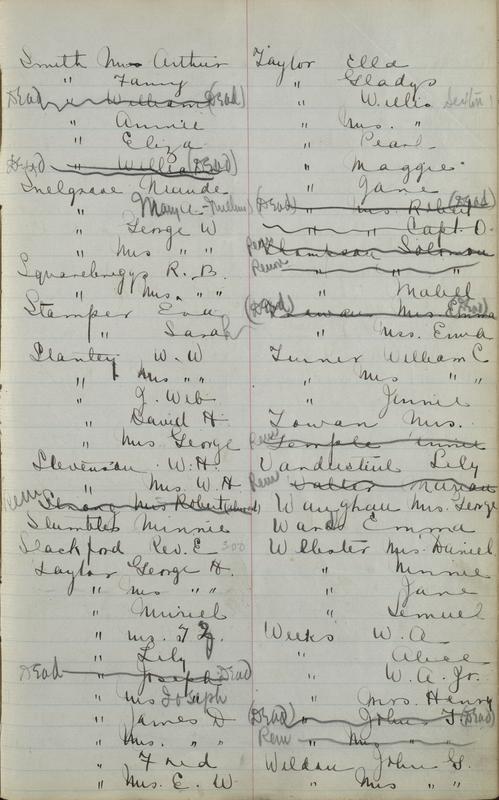 Smith Mrs Arthur
" Fanny
Dead " William (Dead)
" Annie
" Eliza
Dead " Willie (Dead)
Snelgrove Maude
" Mayce
" George W
" Mrs " "
Squarebriggs R. B.
" Mrs. " "
Stamper Eva
" Sarah
Stanley W. W
" Mrs " "
" J. Web
" David H
" Mrs George
Stevenson W. H.
" Mrs. W. H
Rem Strong Mrs Robert
Stumbles Minnie
Stackford Rev. E 300
Taylor George H.
" Mrs " "
" Muriel
" Mrs. F J.
" Lily
Dead " Joseph Dead
" Mrs Joseph
" James D
" Mrs. " "
" Fred
" Mrs. E. W
Taylor Ella
" Gladys
" Willis Sexton
" Mrs. "
" Pearl
" Maggie
" Jane
(Dead) " Mrs. Robert (Dead)
" " Capt D.
Rem Thompson Solomon
Rem " "
" Mabel
(Dead) Mrs. Emma (Dead)
" Mrs. Emma
Turner William C
" Mrs " "
" Jennie
Towan Mrs.
Rem Temple Annie
Vanderstine Lily
Rem Marian
Waughan Mrs. George
Ward Emma
Webster Mrs. Daniel
" Minnie
" Jane
" Lemuel
Weeks W. A
" Alice
" W. A. Jr.
" Mrs. Henry
(Dead) " John T (Dead)
Rem " Mrs " "
Weldon John G.
" Mrs " "